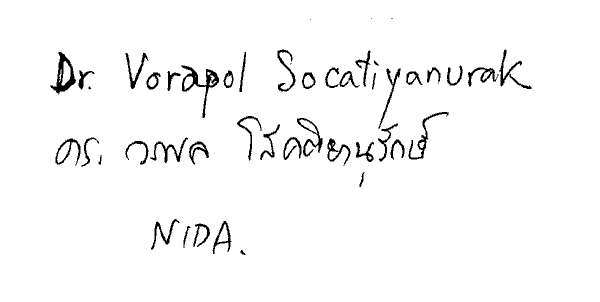 Dr. Vorapol Socatiyanurak
ดร. วรพล โสคติยานุรักษ์
NIDA.